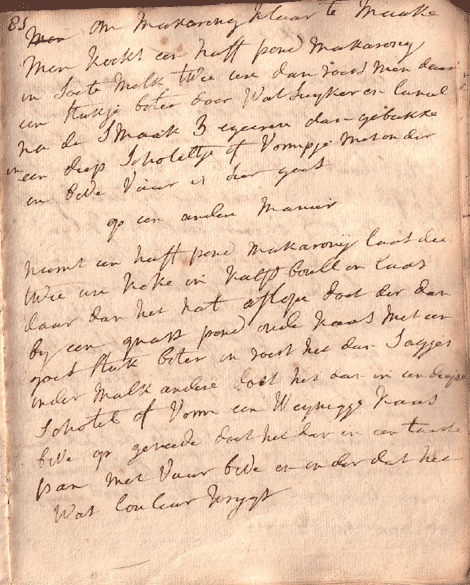 85
om makarony klaar te maake
Men kockt een half pond makarony
in soete melk twee ure dan roert men daar
een stukje boter door wat suyker en caneel
na de smaak 3 eyeren dan gebakke
in een diep schoteltje of vormpje met onder
en bove vuur is seer goet
op een andere manier
neemt een half pond makarony laat die
twee ure koke in kalfs bouillon laat
daar dan het nat aflope doet der dan
by een quart pond oude kaas met een
goet stuk boter en roert het dan
onder malkandere doet het dan in een diepe
schotel of vorm een weynigje kaas
bove op doet het dar in een taarte
pan met vuur bove en onder dat het
wat couleur krygt